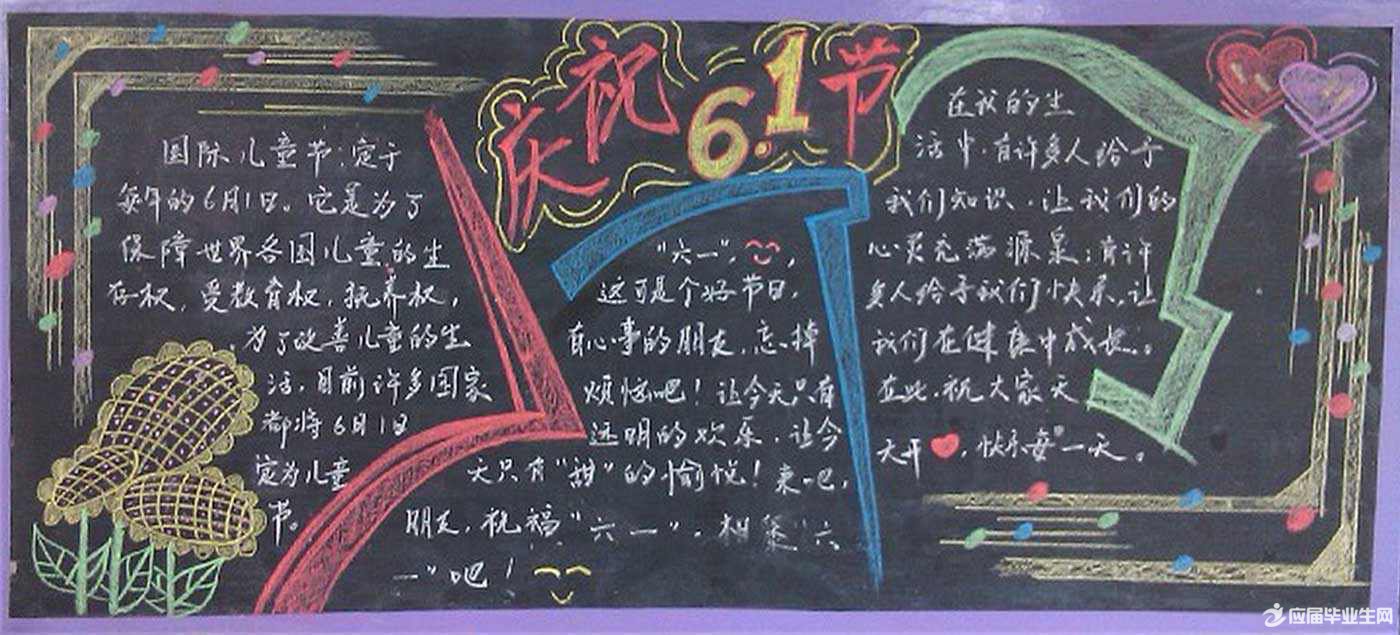 庆祝6.1节
国际儿童节:定于
每年的6月1日。它是为了
保障世界各国儿童的生
存权,受教育权,抚养权,
为了改善儿童的生
活,目前许多国家
都将6月1日
定为儿童
节。
"六一",
这可是个好节日,
有心事的朋友,忘掉
烦恼吧!让今天只有
透明的欢乐,让今
天只有"甜"的愉悦!来吧,
朋友,祝福"六一",相聚"六
一"吧!
在我的生
活中,有许多人给予
我们知识,让我们的
心灵充满源泉;有许
多人给予我们快乐,让
我们在健康中成长。
在此,祝大家天
天开,快乐每一天。
应届毕业生网